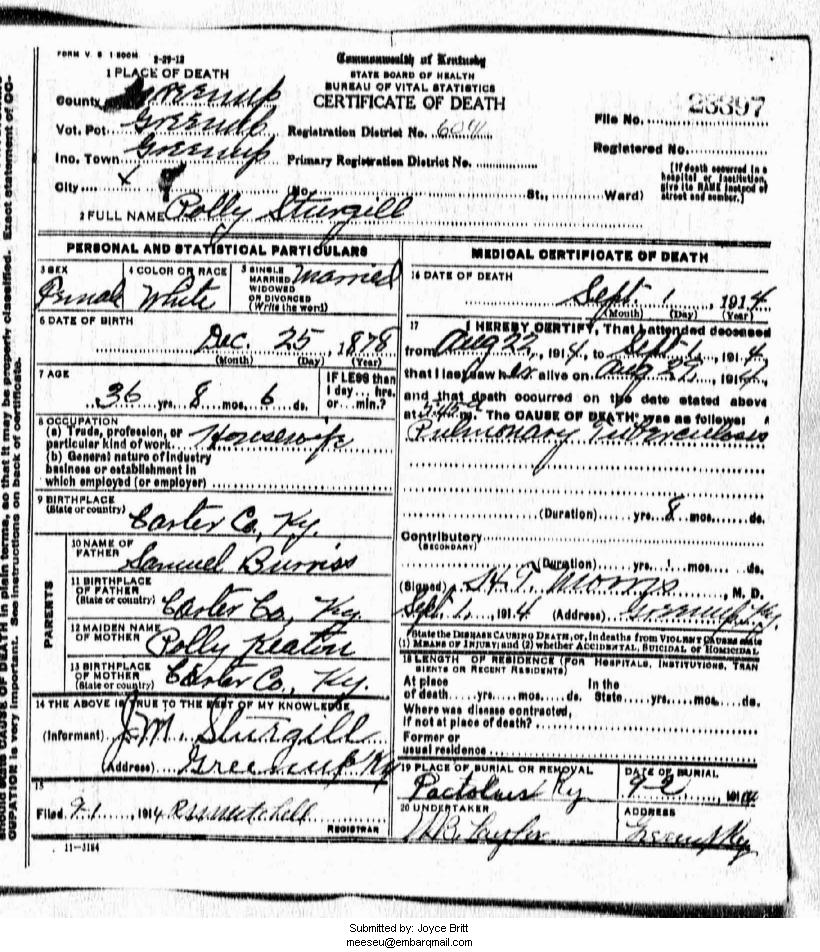 FORM V. S 1 500M. 2-29-12
Commonwealth of Kentucky
STATE BOARD OF HEALTH
BUREAU OF VITAL STATISTICS
CERTIFICATE OF DEATH
1 PLACE OF DEATH
County Greenup
Vot. Pct. Greenup
Inc. Town Greenup
City
Registration District No. 6041
Primary Registration District No.
(No. St., Ward)
File No. 23397
Registered No.
[If death occurred in a
hospital or institution,
give its NAME instead of
street and number.]
2 FULL NAME Polly Sturgill
PERSONAL AND STATISTICAL PARTICULARS
3 SEX Female
4 COLOR OR RACE White
5 SINGLE
MARRIED
WIDOWED
OR DIVORCED
(Write the word) Married
6 DATE OF BIRTH
Dec. 25, 1878
(Month) (Day) (Year)
7 AGE
36 yrs. 8 mos. 6 ds.
IF LESS than
1 day... hrs.
or... min.?
8 OCCUPATION
(a) Trade, profession, or
particular kind of work Housewife
(b) General nature of industry
business or establishment in
which employed (or employer)
9 BIRTHPLACE
(State or country) Carter Co, Ky.
PARENTS
10 NAME OF
FATHER Samuel Burriss
11 BIRTHPLACE
OF FATHER
(State or country) Carter Co, Ky.
12 MAIDEN NAME
OF MOTHER Polly Keaton
13 BIRTHPLACE
OF MOTHER
(State or country) Carter Co., Ky.
14 THE ABOVE IS TRUE TO THE BEST OF MY KNOWLEDGE
(Informant) J.M. Sturgill
(Address) Greenup Ky
15
Filed 9-1, 1914 Mitchell
REGISTRAR
11-3184
MEDICAL CERTIFICATE OF DEATH
16 DATE OF DEATH
Sept. 1, 1914
(Month) (Day) (Year)
17 I HEREBY CERTIFY, That I attended deceased
from Aug 22, 1914, to Sept 1, 1914
that I last saw her alive on Aug 29, 1914
and that death occurred on the date stated above
at m. The CAUSE OF DEATH* was as follows:
Pulmonary Tuberculosis
(Duration) yrs. 8 mos. ds.
Contributory
(SECONDARY)
(Duration) yrs. mos. ds.
(Signed) H.T. Morris, M. D.
Sept 1, 1914 (Address) Greenup Ky.
*State the DISEASE CAUSING DEATH, or, in deaths from VIOLENT CAUSES state
(1) MEANS OF INJURY; and (2) whether ACCIDENTAL, SUICIDAL or HOMICIDAL
18 LENGTH OF RESIDENCE (FOR HOSPITALS, INSTITUTIONS, TRAN
SIENTS OR RECENT RESIDENTS)
At place In the
of death yrs. mos. ds. State yrs. mos. ds.
Where was disease contracted,
if not at place of death?
Former or
usual residence
19 PLACE OF BURIAL OR REMOVAL
Pactolus Ky
DATE OF BURIAL
9-2, 1914
20 UNDERTAKER
Taylor
ADDRESS
Greenup Ky
CAUSE OF DEATH in plain terms, so that it may be properly classified. Exact statement of OC-
CUPATION is very important. See instructions on back of certificate.
Submitted by: Joyce Britt
meeseu@embarqmail.com